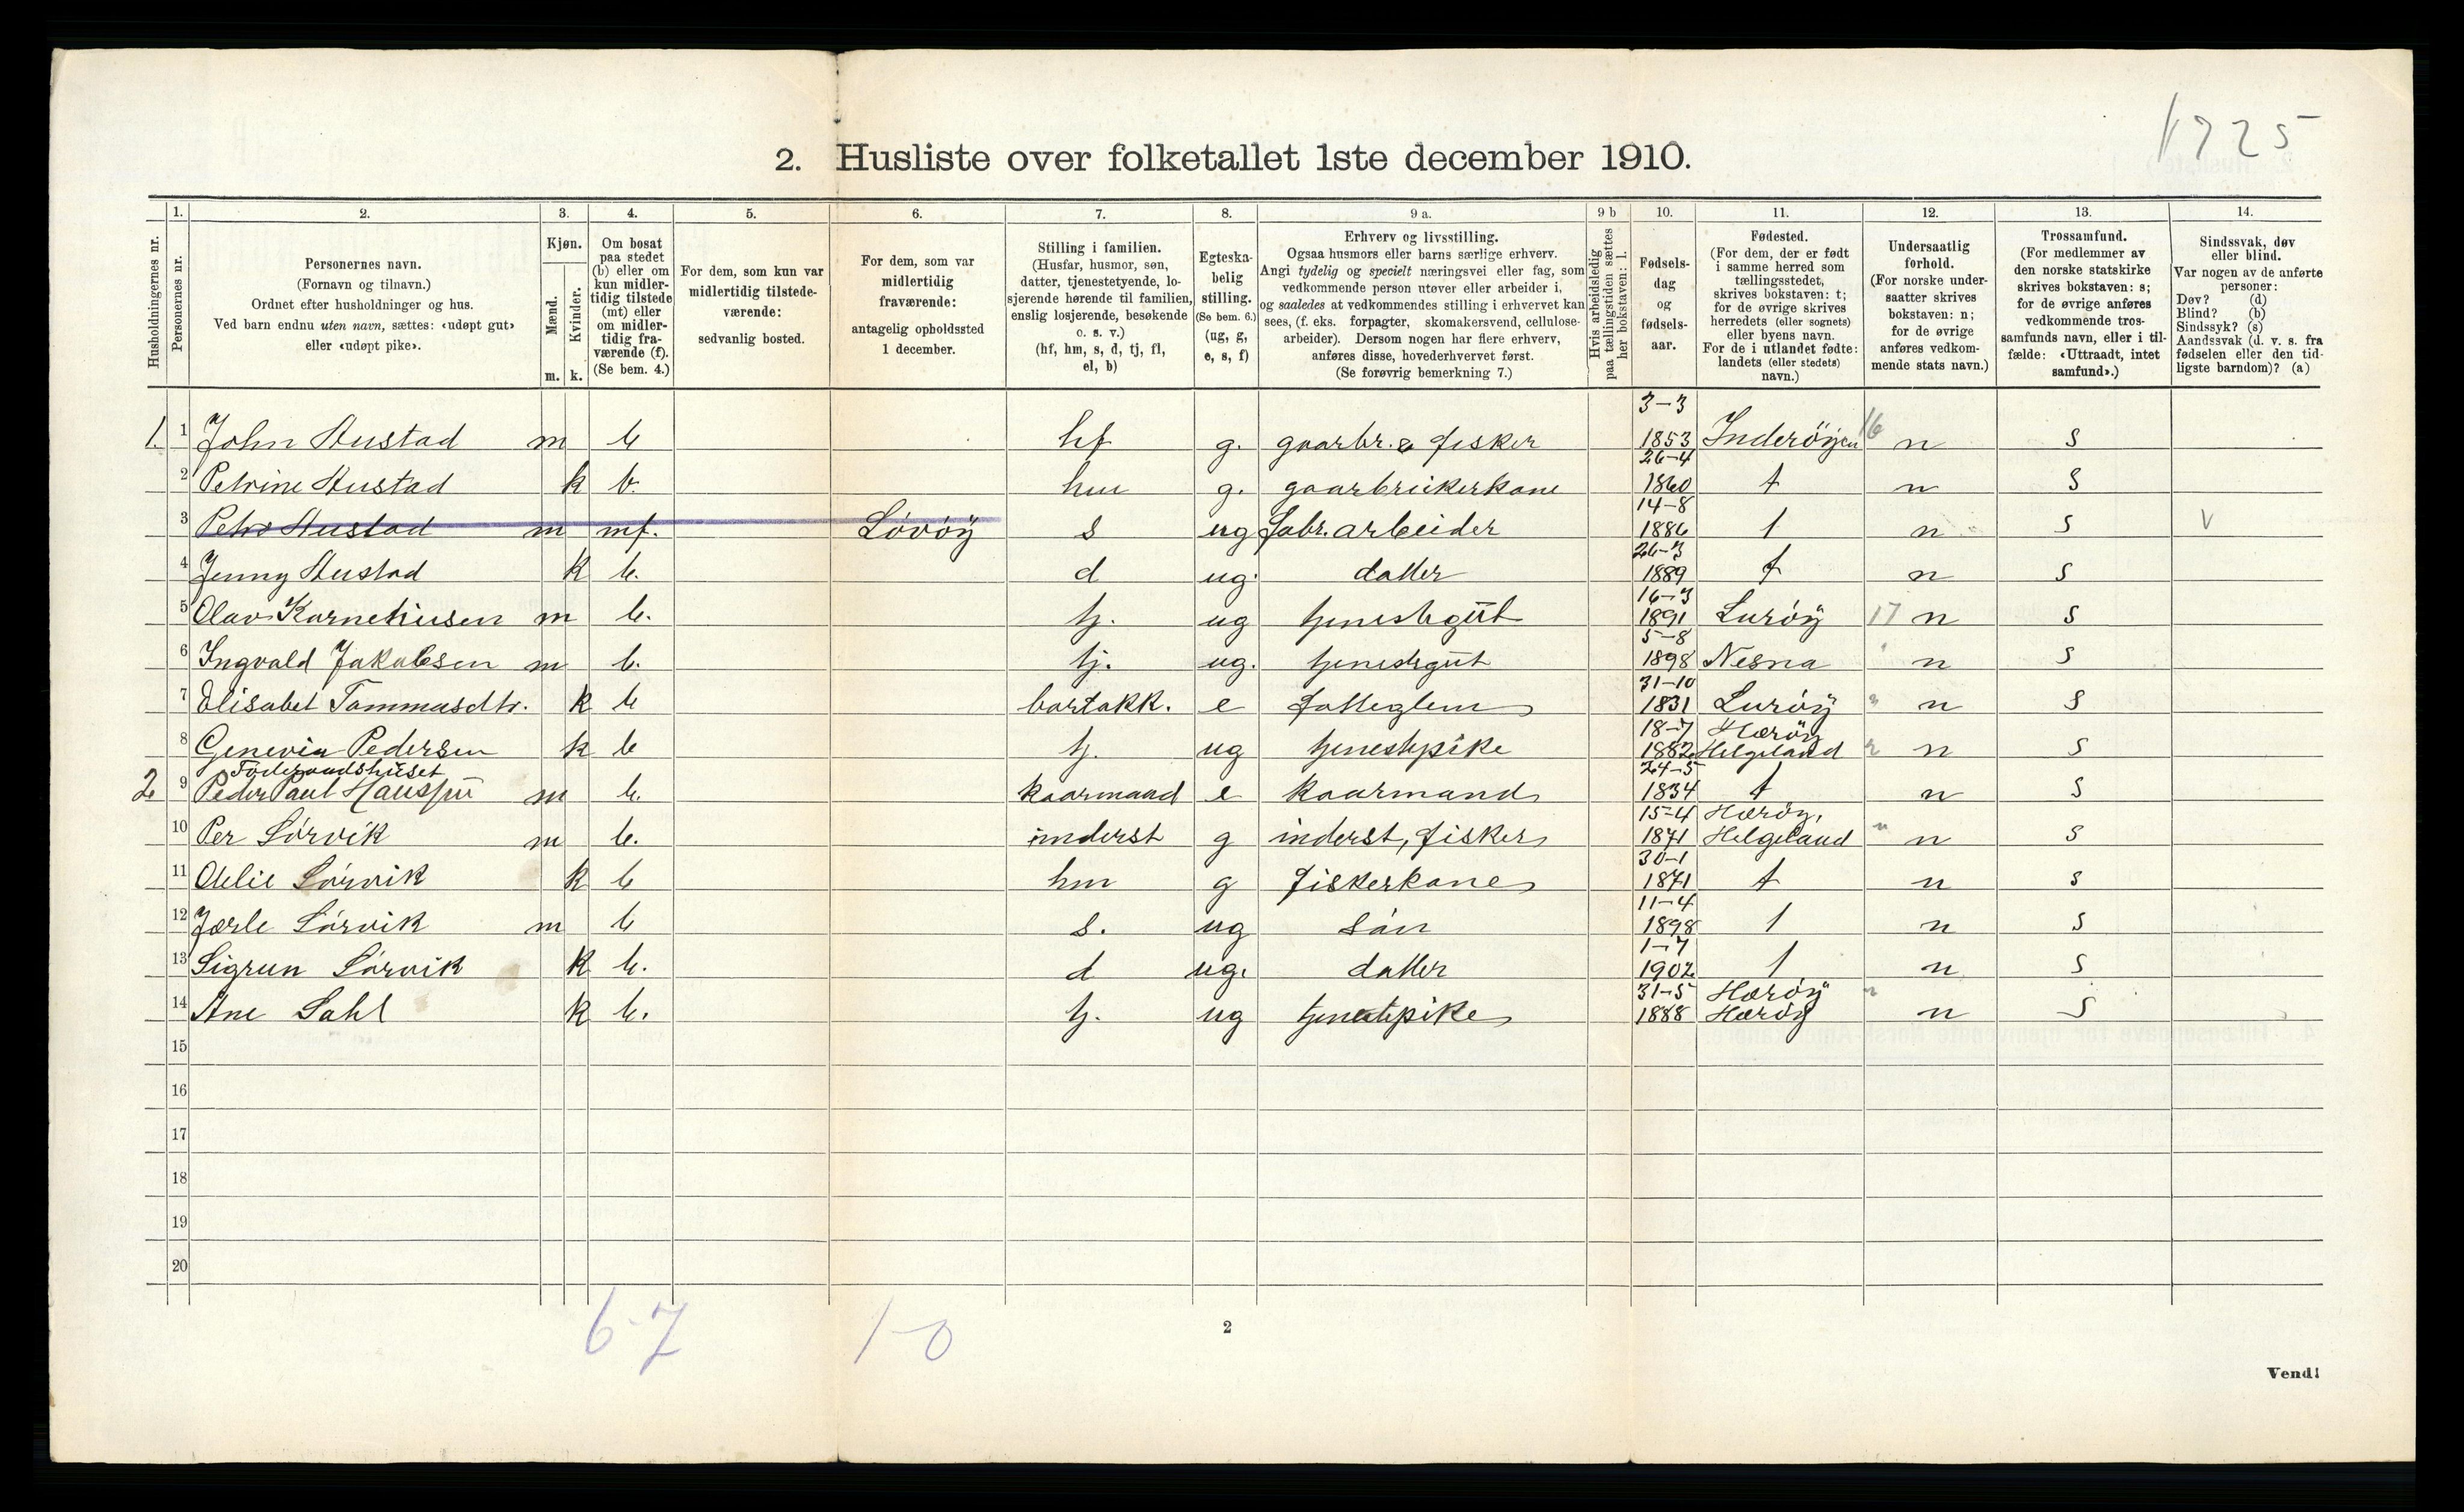 1725
2. Husliste over folketallet 1ste december 1910.
1. 2. 3. 4. 5. 6. 7. 8. 9 a. 9 b 10. 11. 12. 13. 14.
Husholdningernes nr.
Personernes nr.
Personernes navn.
(Fornavn og tilnavn.)
Ordnet efter husholdninger og hus.
Ved barn endnu uten navn, sættes: «udøpt gut»
eller «udøpt pike».
Kjøn.
Mænd.
Kvinder.
m. k.
Om bosat
paa stedet
(b) eller om
kun midler-
tidig tilstede
(mt) eller
om midler-
tidig fra-
værende (f).
(Se bem. 4.)
For dem, som kun var
midlertidig tilstede-
værende:
sedvanlig bosted.
For dem, som var
midlertidig
fraværende:
antagelig opholdssted
1 december.
Stilling i familien.
(Husfar, husmor, søn,
datter, tjenestetyende, lo-
sjerende hørende til familien,
enslig losjerende, besøkende
o. s. v.)
(hf, hm, s, d, tj, fl,
el, b)
Egteska-
belig
stilling.
(Se bem. 6.)
(ug, g,
e, s, f)
Erhverv og livsstilling.
Ogsaa husmors eller barns særlige erhverv.
Angi tydelig og specielt næringsvei eller fag, som
vedkommende person utøver eller arbeider i,
og saaledes at vedkommendes stilling i erhvervet kan
sees, (f. eks. forpagter, skomakersvend, cellulose-
arbeider). Dersom nogen har flere erhverv,
anføres disse, hovederhvervet først.
(Se forøvrig bemerkning 7.)
Hvis arbeidsledig
paa tællingstiden sættes
her bokstaven: l.
Fødsels-
dag
og
fødsels-
aar.
Fødested.
(For dem, der er født
i samme herred som
tællingsstedet,
skrives bokstaven: t;
for de øvrige skrives
herredets (eller sognets)
eller byens navn.
For de i utlandet fødte:
landets (eller stedets)
navn.)
Undersaatlig
forhold.
(For norske under-
saatter skrives
bokstaven: n;
for de øvrige
anføres vedkom-
mende stats navn.)
Trossamfund.
(For medlemmer av
den norske statskirke
skrives bokstaven: s;
for de øvrige anføres
vedkommende tros-
samfunds navn, eller i til-
fælde: «Uttraadt, intet
samfund».)
Sindssvak, døv
eller blind.
Var nogen av de anførte
personer:
Døv? (d)
Blind? (b)
Sindssyk? (s)
Aandssvak (d. v. s. fra
fødselen eller den tid-
ligste barndom)? (a)
1. 1 John Hustad m b hf g. gaarbr. & fisker 3-3 1853 Inderöyen 16 n s
2 Petrine Hustad k b. hm g. gaarbrukerkone 26-4 1860 t n s
3 Peter Hustad m mf. Lovöy s ug fabr. arbeider 14-8 1886 t n s v
4 Jenny Hustad k b. d ug. datter 26-3 1889 t n s
5 Olav Korneliusen m b. tj. ug tjenestegut 16-3 1891 Luröy 17 n s
6 Ingvald Jakobsen m b. tj. ug. tjenestegut 5-8 1898 Nesna " n s
7 Elisabet Tommasdtr. k b bortakk. e fatteglem 31-10 1831 Luröy " n s
8 Genevia Pedersen k b tj. ug tjenestepike 18-7 1882 Heröy Helgeland n s
Föderaadshuset
2 9 Peder Paul Hanssen m b. kaarmand e kaarmand 24-5 1834 t n s
10 Per Sörvik m b. inderst g inderst, fisker 15-4 1871 Heröy, Helgeland " n s
11 Odelie Sörvik k b hm g fiskerkone 30-1 1871 t n s
12 Jarle Sörvik m b s. ug sön 11-4 1898 t n s
13 Sigrun Sörvik k b. d ug. datter 1-7 1902 t n s
14 Ane Sahl k b. tj. ug tjenestepike 31-5 1888 Heröy Heröy " n s
15
16
17
18
19
20
6-7 1-0
2
Vend!